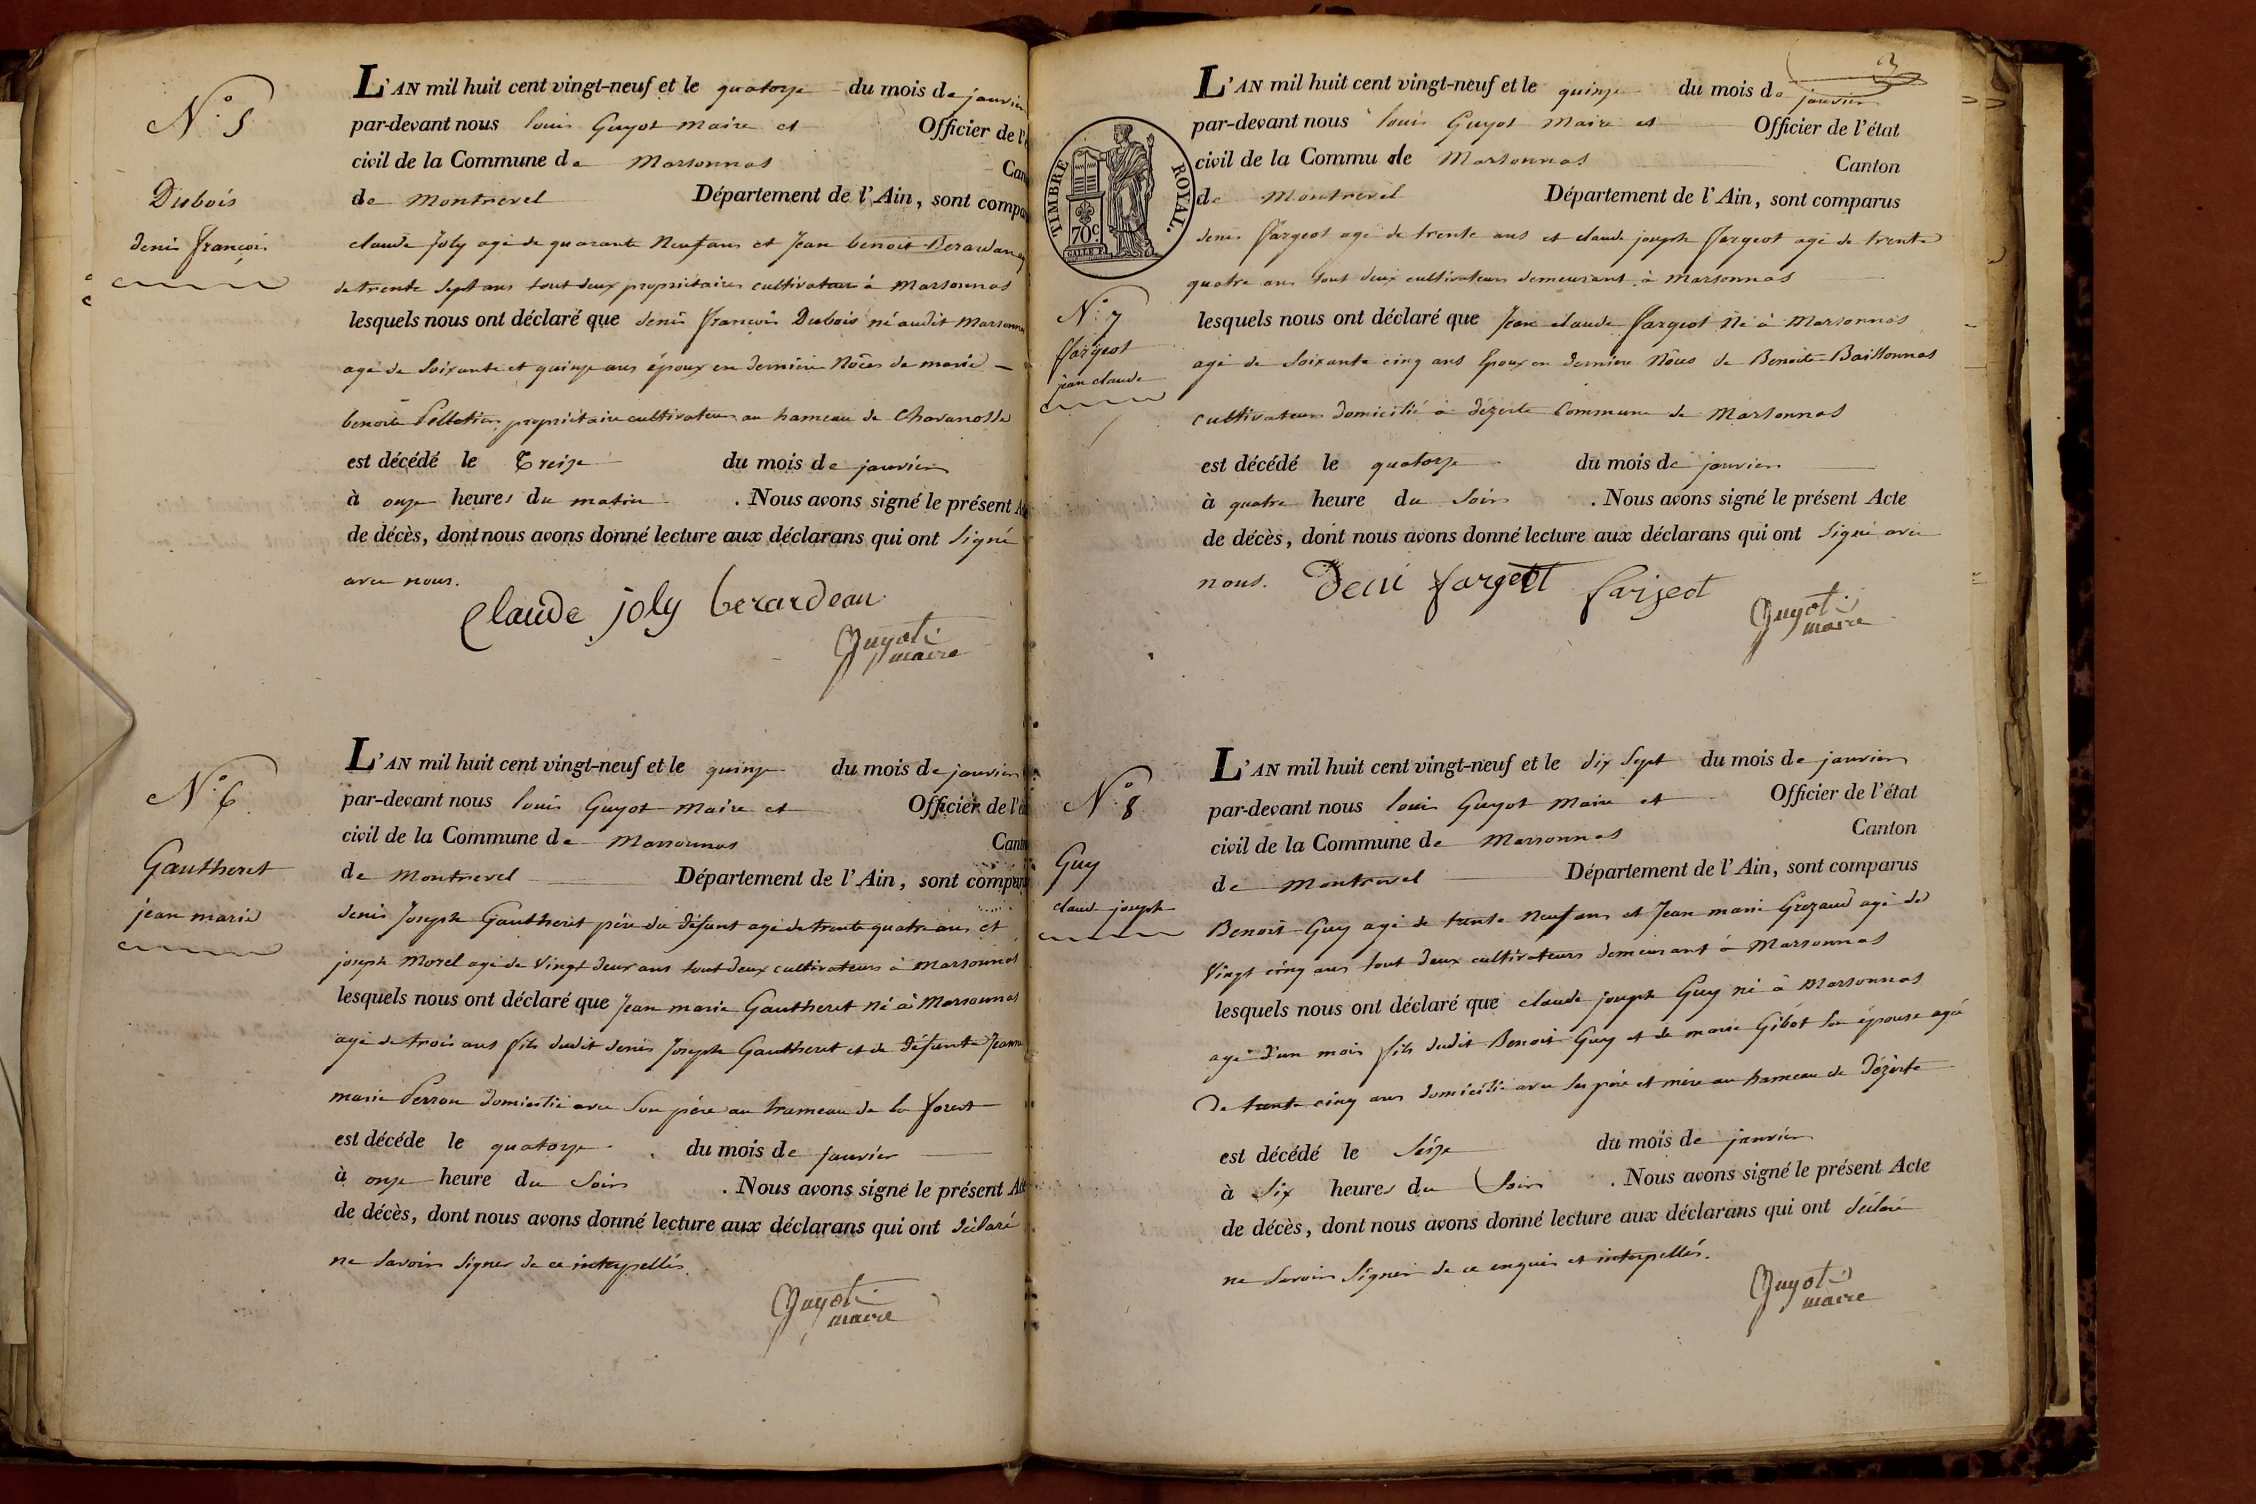 N.° 5
Dubois
denis françois
L'AN mil huit cent vingt-neuf et le quatorze du mois de janvier
par-devant nous louis Guyot maire et Officier de l'é
civil de la Commune de Marsonnas Can
de Montrevel Département de l'Ain, sont compa
claude Joly agé de quarante neuf ans et Jean benoit Berardan
de trente sept ans tout deux propriétaires cultivateur à Marsonnas
lesquels nous ont déclaré que denis françois Dubois né audit Marsonnas
agé de soixante et quinze ans époux en derniere Nôces de marie
benoite Pelletier propriétaire cultivateur au hameau de Chavanosse
est décédé le Treize du mois de janvier
à onze heures du matin . Nous avons signé le présent A
de décès, dont nous avons donné lecture aux déclarans qui ont signé
avec nous.
claude joly berardean
Guyot
maire
N.° 6
Gautheret
jean marie
L'AN mil huit cent vingt-neuf et le quinze du mois de janvier
par-devant nous louis Guyot maire et Officier de l'é
civil de la Commune de Marsonnas Cant
de Montrevel Département de l'Ain, sont compar
denis Joseph Gautheret père du défunt agé de trente quatre ans et
joseph Morel agé de Vingt deux ans tout deux cultivateurs à Marsonnas
lesquels nous ont déclaré que Jean marie Gautheret né à Marsonnas
agé de trois ans fils dudit denis Joseph Gautheret et de défunte Jeanne
marie Perron domicilié avec son père au hameau de la forest
est décéde le quatorze du mois de janvier
à onze heure du soir . Nous avons signé le présent Act
de décès, dont nous avons donné lecture aux déclarans qui ont déclaré
ne savoir signer de ce interpellés.
Guyot
maire
3
L'AN mil huit cent vingt-neuf et le quinze du mois de janvier
par-devant nous louis Guyot Maire et Officier de l'état
civil de la Commu de Marsonnas Canton
de Montrevel Département de l'Ain, sont comparus
TIMBRE ROYAL.
70c
denis fargeot agé de trente ans et claude joseph fargeot agé de trente
quatre ans tout deux cultivateurs demeurant à Marsonnas
N.° 7
fargeot
jean claude
lesquels nous ont déclaré que Jean claude fargeot Né à Marsonnas
agé de soixante cinq ans Epoux en derniere Nôces de Benoite Baillonnas
cultivateur domicilié à dézerte Commune de Marsonnas
est décédé le quatorze du mois de janvier
à quatre heure du soir . Nous avons signé le présent Acte
de décès, dont nous avons donné lecture aux déclarans qui ont signé avec
nous.
Deni fargeot farjeot
Guyot
maire
N.° 8
Guy
claude joseph
L'AN mil huit cent vingt-neuf et le dix sept du mois de janvier
par-devant nous louis Guyot Maire et Officier de l'état
civil de la Commune de Marsonnas Canton
de Montrevel Département de l'Ain, sont comparus
Benoit Guy agé de trente Neuf ans et Jean marie Grezaud agé de
Vingt cinq ans tout deux cultivateurs demeurant à Marsonnas
lesquels nous ont déclaré que claude joseph Guy né à Marsonnas
agé d'un mois fils dudit Benoit Guy et de marie Gibot son épouse agée
de trente cinq ans domicilié avec ses père et mère au hameau de Dézerte
est décédé le seize du mois de janvier
à six heures du soir . Nous avons signé le présent Acte
de décès, dont nous avons donné lecture aux déclarans qui ont déclaré
ne savoir signer de ce enquis et interpellés.
Guyot
maire